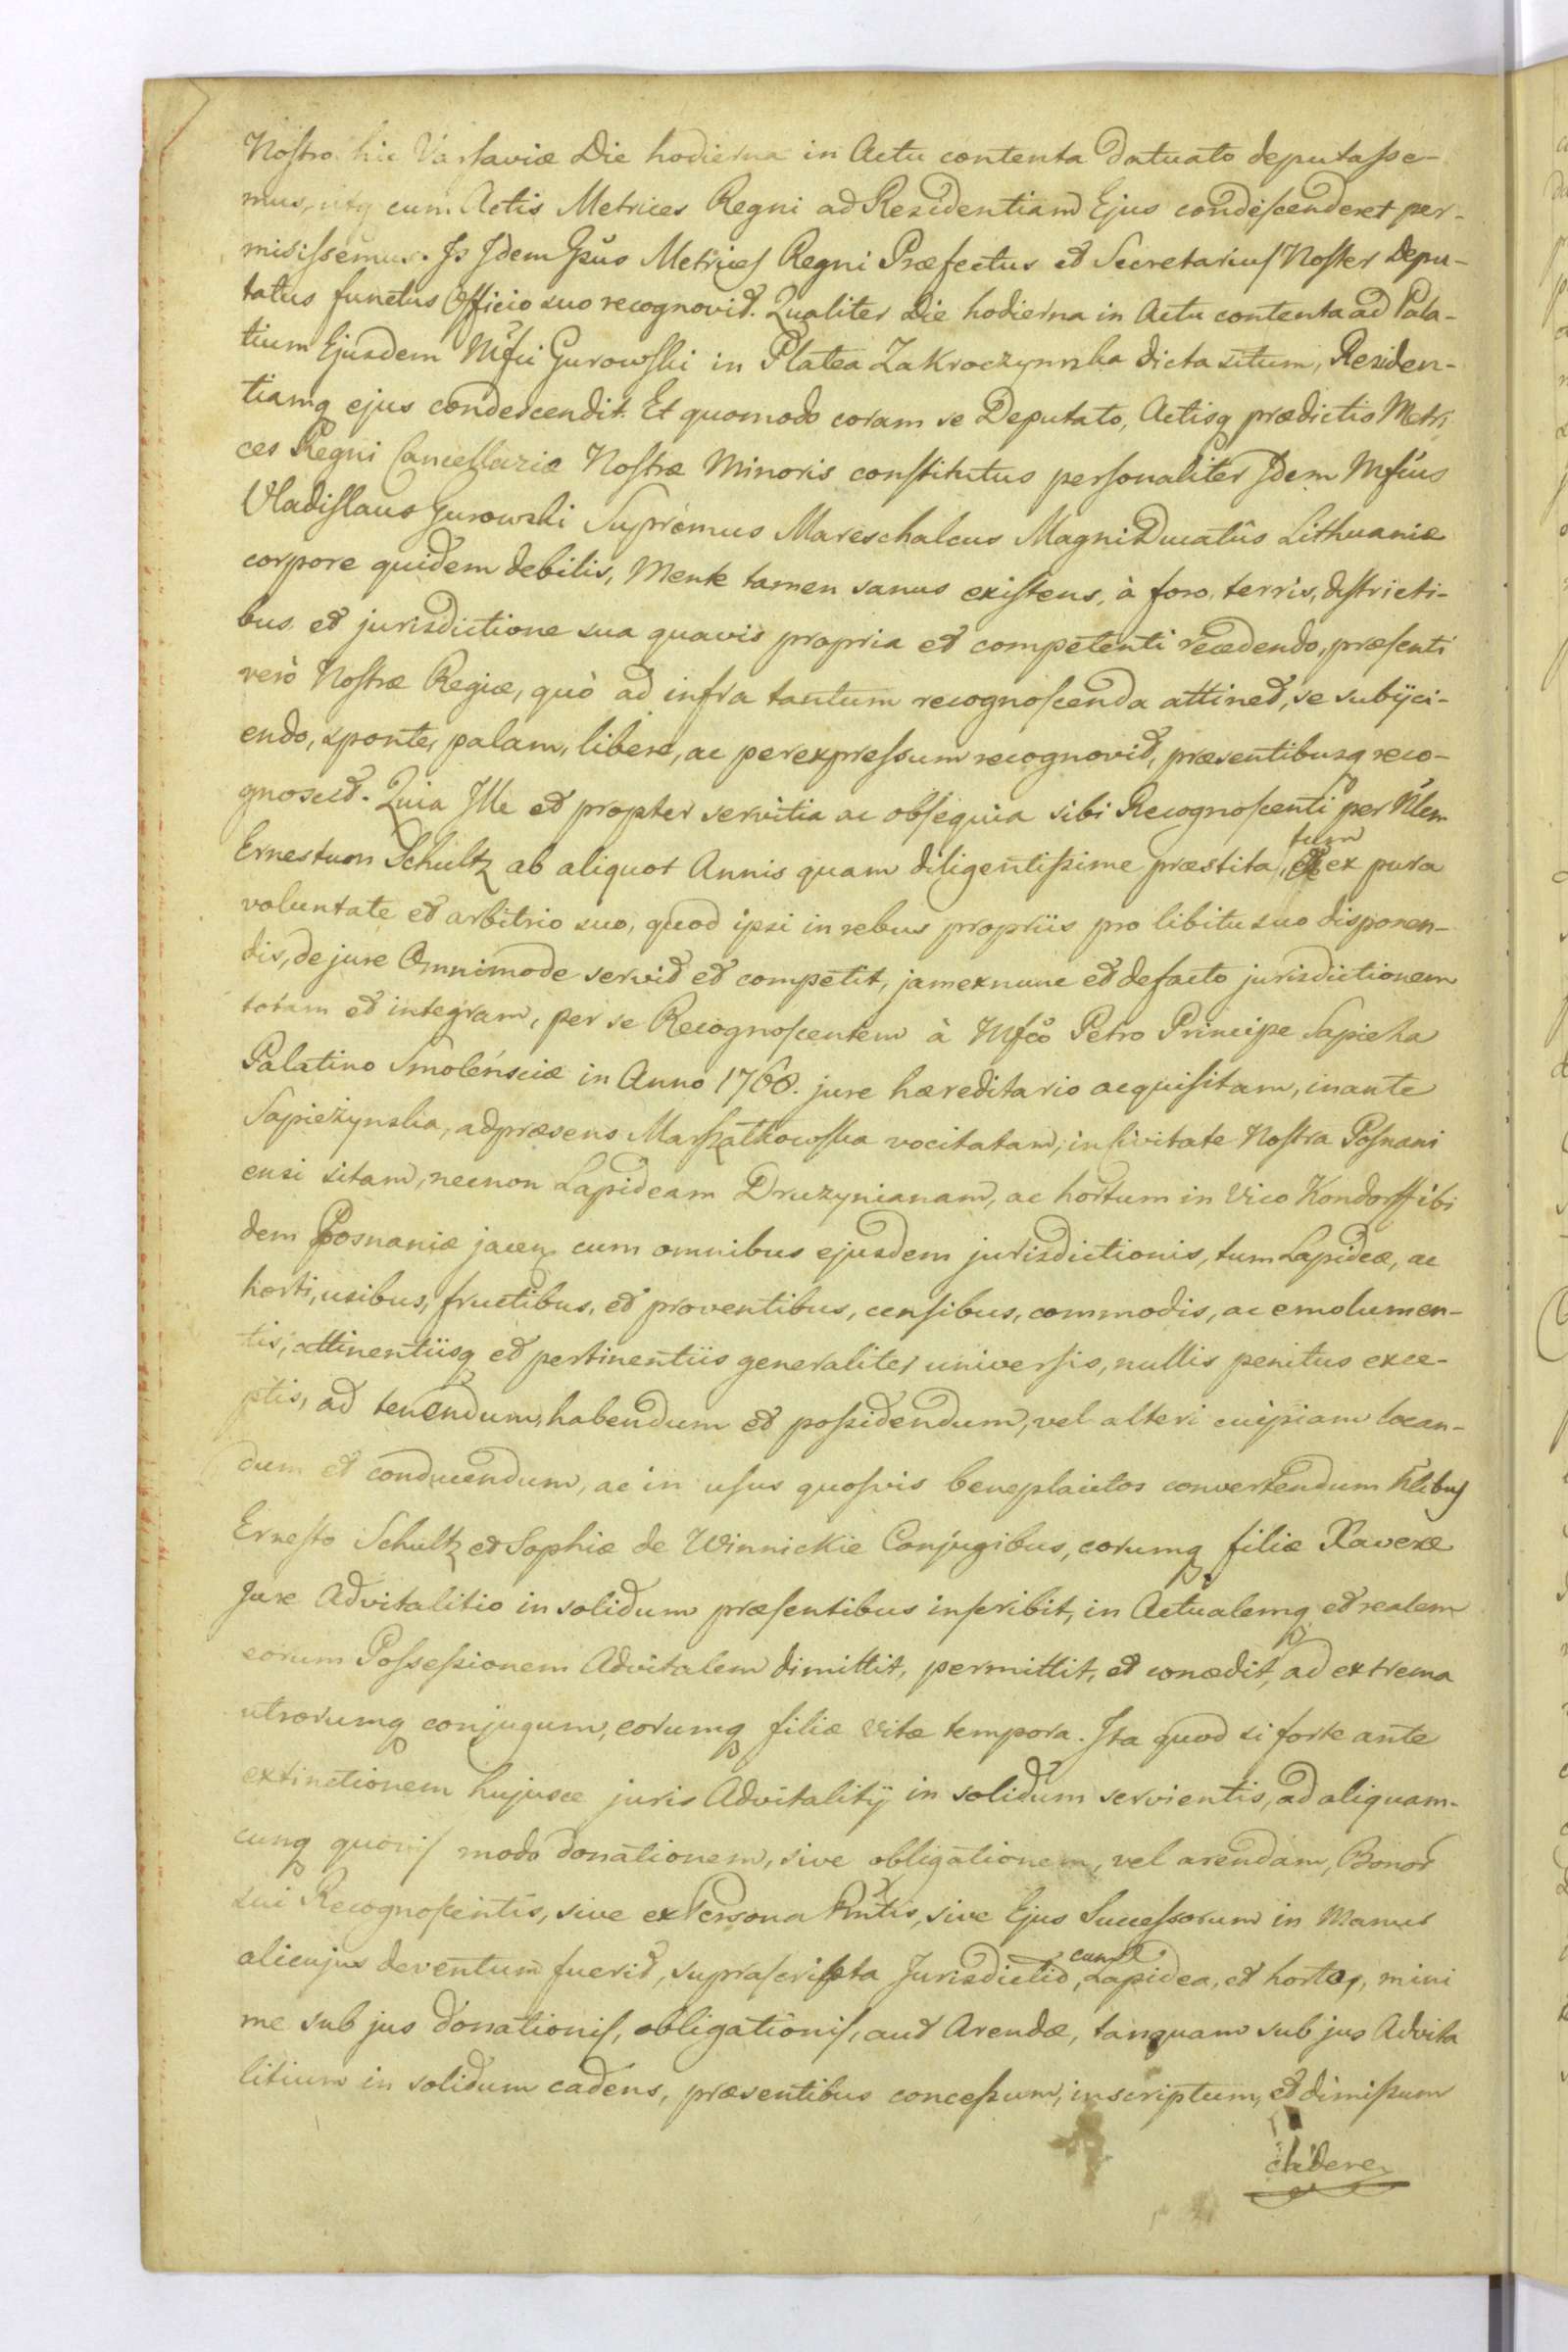 Nostro hic Varsaviæ Die hodierna in Actu contenta datuato deputasse-
mus, utq cum Actis Metrices Regni ad Residentiam Ejus condescenderet per-
misissemus. Is Idem Gsus Metrices Regni Præfectus et Secretarius Noster Depu-
tatus functus Officio suo recognovit. Qualiter Die hodierna in Actu contenta ad Pala-
tium Ejusdem Mfci Gurowski in Platea Zakroczymska dicta situm, Residen-
tiamq ejus condescendit. Et quomodo coram se Deputato, Actisq prædictis Metri
ces Regni Cancellariæ Nostræ Minoris constitutus personaliter Idem Mfcus
Vladislaus Gurowski Supremus Mareschalcus Magni Ducatûs Lithuaniæ
corpore quidem debilis, Mente tamen sanus existens, à foro, terris, districti-
bus et jurisdictione sua quavis propria et competenti recedendo, præsenti
verò Nostræ Regiæ, quò ad infra tantum recognoscenda attinet, se subijci-
endo, sponte, palam, libere, ac per expressum recognovit, præsentibusq reco-
gnoscit. Quia Ille et propter servitia ac obsequia sibi Recognoscenti per Nlem
Ernestum Schultz ab aliquot Annis quam diligentissime præstita, tum ex pura
voluntate et arbitrio suo, quod ipsi in rebus propriis pro libitu suo disponen-
dis, de jure Omnimode servit et competit, jam ex nunc et de facto jurisdictionem
totam et integram, per se Recognoscentem à Mfco Petro Principe Sapieha
Palatino Smolensciæ in Anno 1768. jure hæreditario acquisitam, in ante
Sapieżynska, ad præsens Marszałkowska vocitatam, in Civitate Nostra Posnani
ensi sitam, necnon Lapideam Druzynianam, ac hortum in Vico Kondorff ibi
dem Posnaniæ jacen cum omnibus ejusdem jurisdictionis, tum Lapideæ, ac
horti, usibus, fructibus, et proventibus, censibus, commodis, ac emolumen-
tis, attinentiisq et pertinentiis generaliter universis, nullis penitus exce-
ptis, ad tenendum, habendum et possidendum, vel alteri cuipiam locan-
dum et conducendum, ac in usus quosvis beneplacitos convertendum Nlibus
Ernesto Schultz et Sophiæ de Winnickie Conjugibus, eorumq filiæ Xaveræ
Jure Advitalitio in solidum præsentibus inscribit, in Actualemq et realem
eorum Possessionem Advitalem dimittit, permittit, et concedit, ad extrema
utrorumq conjugum, eorumq filiæ vitæ tempora. Ita quod si forte ante
extinctionem hujusce juris Advitalitÿ in solidum servientis, ad aliquam-
cunq quovis modo donationem, sive obligationem, vel arendam, Bonor
sui Recognoscentis, sive ex Persona Rntis, sive Ejus Successorum in Manus
alicujus deventum fuerit, suprascripta Jurisdictio, cum Lapidea, et horto, mini
me sub jus donationis, obligationis, aut Arendæ, tanquam sub jus Advita
litium in solidum cadens, præsentibus concessum, inscriptum, et dimissum
cadere